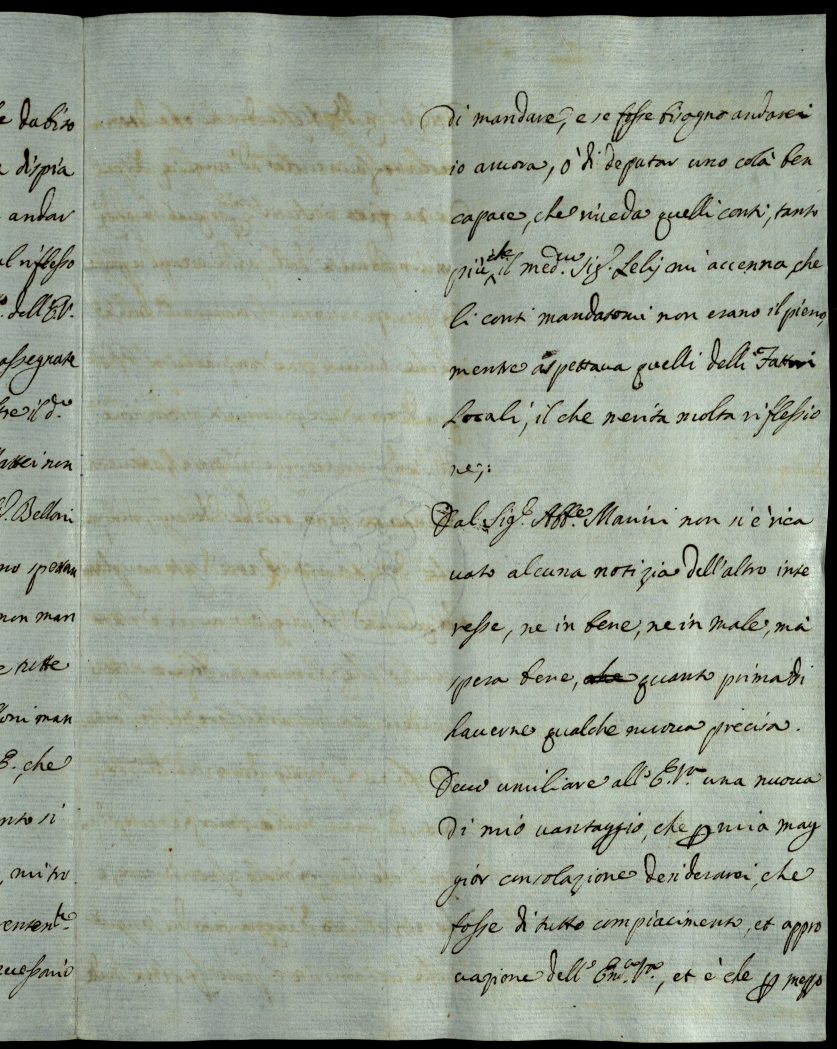 e dabiro
dispia
andar
al riflesso
dell'E.V.
assegnate
tre il d.º
attei non
Belloni
no speran
non man
e tutte
loni man
E., che
nto si
, mi tro
cessario
di mandare, e se fosse bisogno andarei
io ancora, ò di deputar uno colà ben
capace, che riveda quelli conti, tanto
più che il med.mo Sig.r Lelij mi accenna, che
li conti mandatomi non erano il pieno,
mentre aspettava quelli delli Fattori
Locali, il che merita molta riflessio
ne;:
Dal Sig.r Abb.e Marini non si è rica
vato alcuna notizia dell'altro inte
resse, ne in bene, ne in male, mà
spera bene, che quanto prima di
haverne qualche nuova precisa.
Devo umiliare all'E.V.ra una nuova
di mio vantaggio, che p mia mag
gior consolazione desiderarei, che
fosse di tutto compiacimento, et appro
vazione dell'Em.V.ra, et è che p mezzo